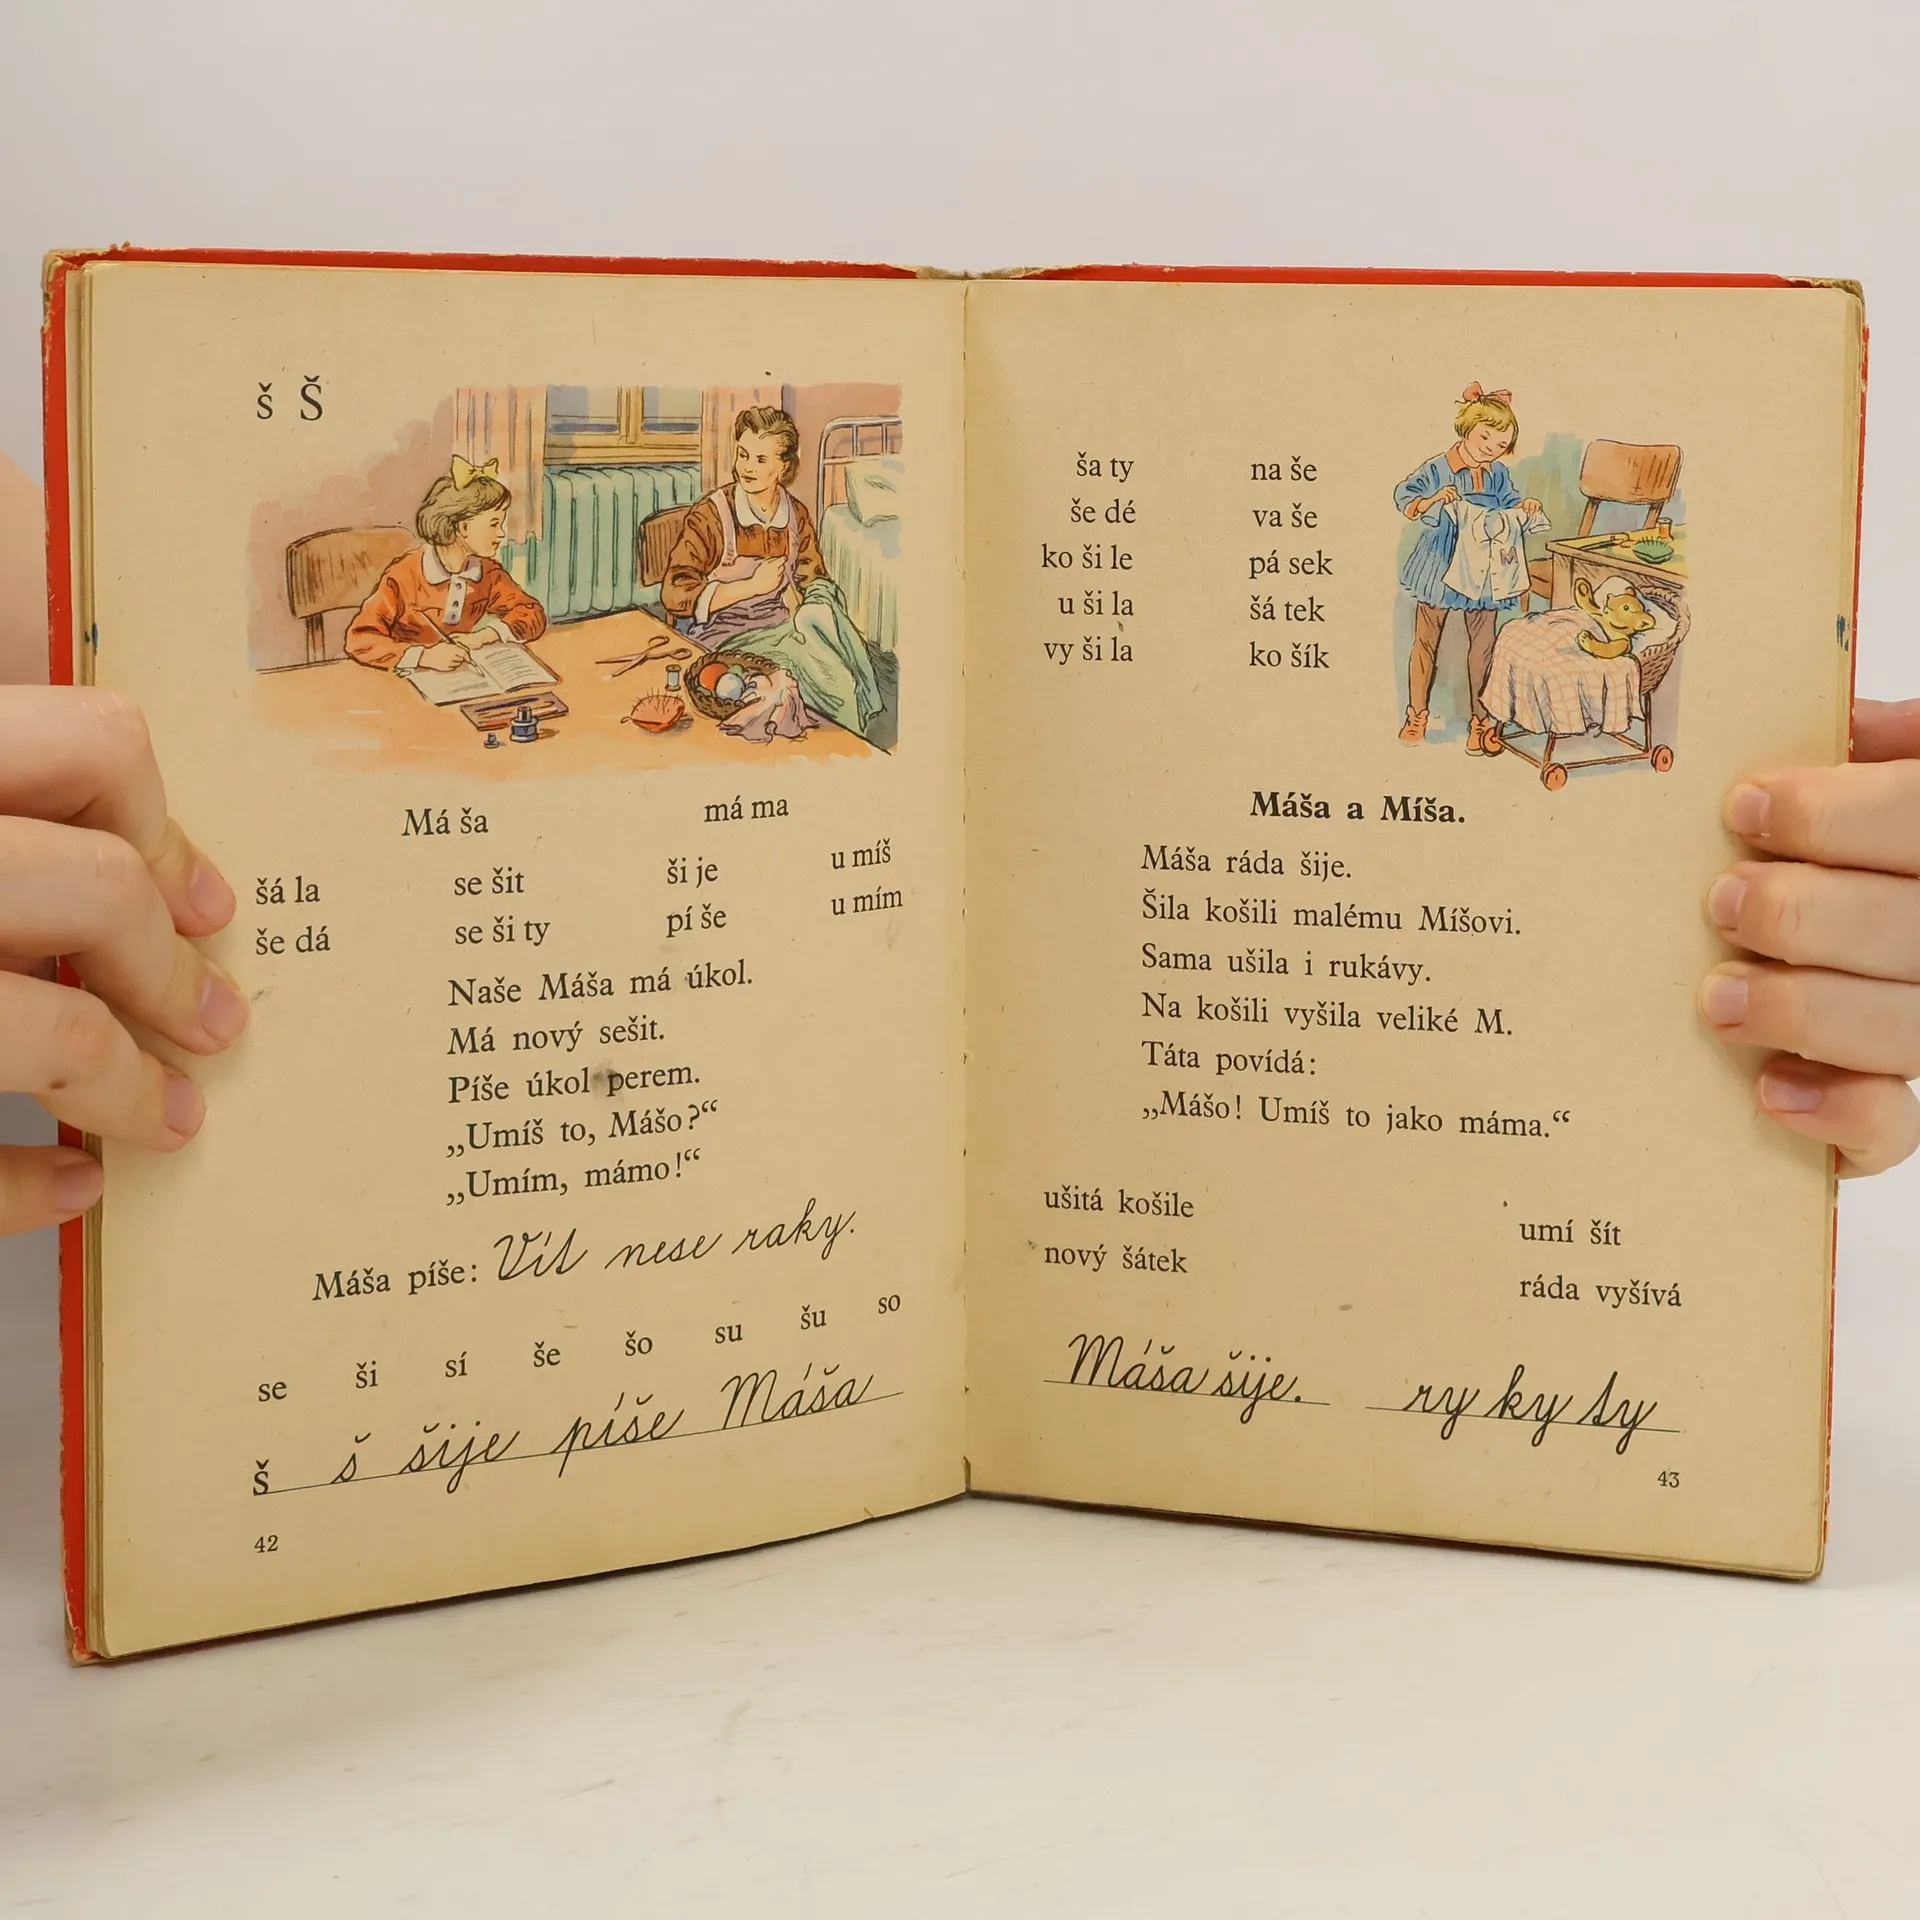 š Š
Má ša má ma
šá la se šit ši je u míš
še dá se ši ty pí še u mím
Naše Máša má úkol.
Má nový sešit.
Píše úkol perem.
„Umíš to, Mášo?“
„Umím, mámo!“
Máša píše: Vít nese raky.
se ši sí še šo su šu so
Š š šije píše Máša
42
ša ty na še
še dé va še
ko ši le pá sek
u ši la šá tek
vy ši la ko šík
M
Máša a Míša.
Máša ráda šije.
Šila košili malému Míšovi.
Sama ušila i rukávy.
Na košili vyšila veliké M.
Táta povídá:
„Mášo! Umíš to jako máma.“
ušitá košile umí šít
nový šátek ráda vyšívá
Máša šije. ry ky ty
43